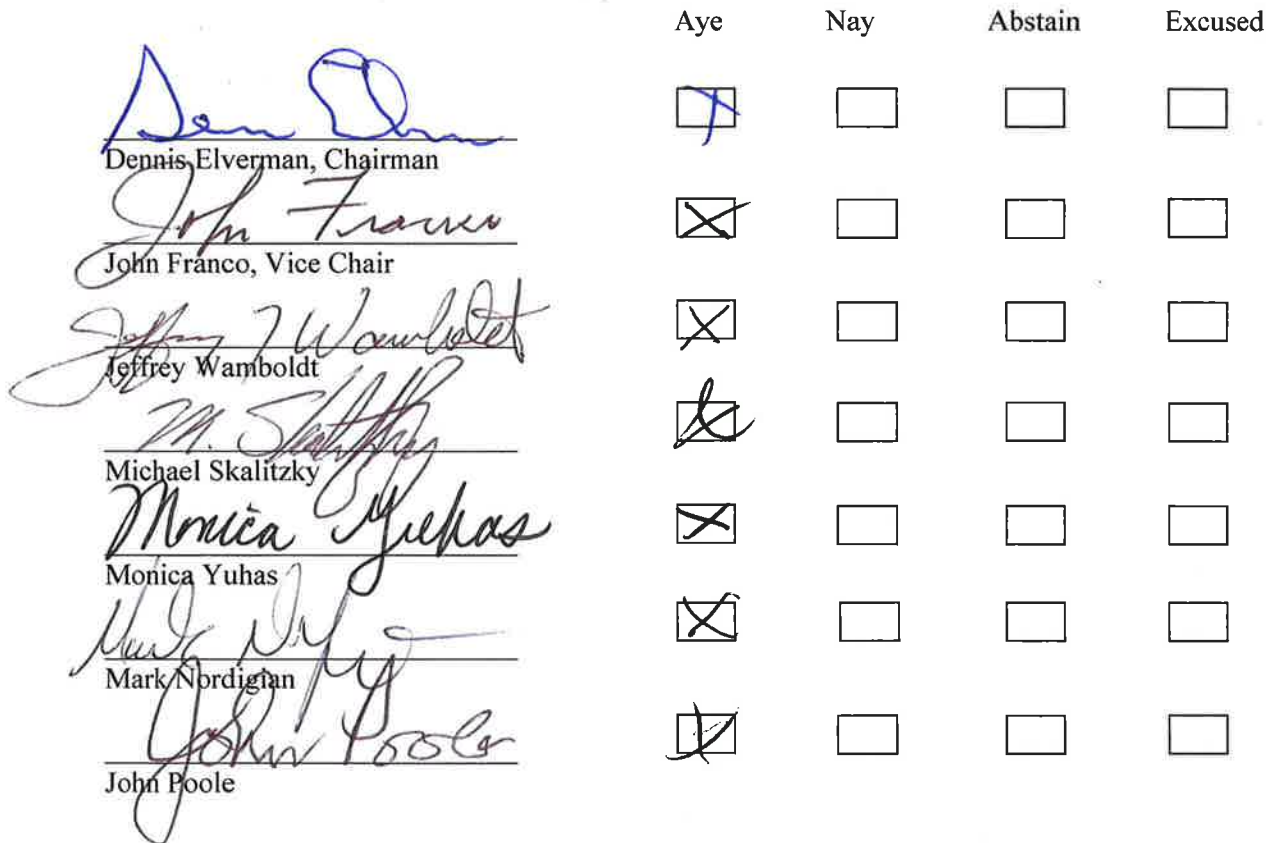 Aye Nay Abstain Excused
Dennis Elverman, Chairman
John Franco
John Franco, Vice Chair
Jeffrey T Wamboldt
Jeffrey Wamboldt
M. Skalitzky
Michael Skalitzky
Monica Yuhas
Monica Yuhas
Mark Nordigian
John Poole
John Poole